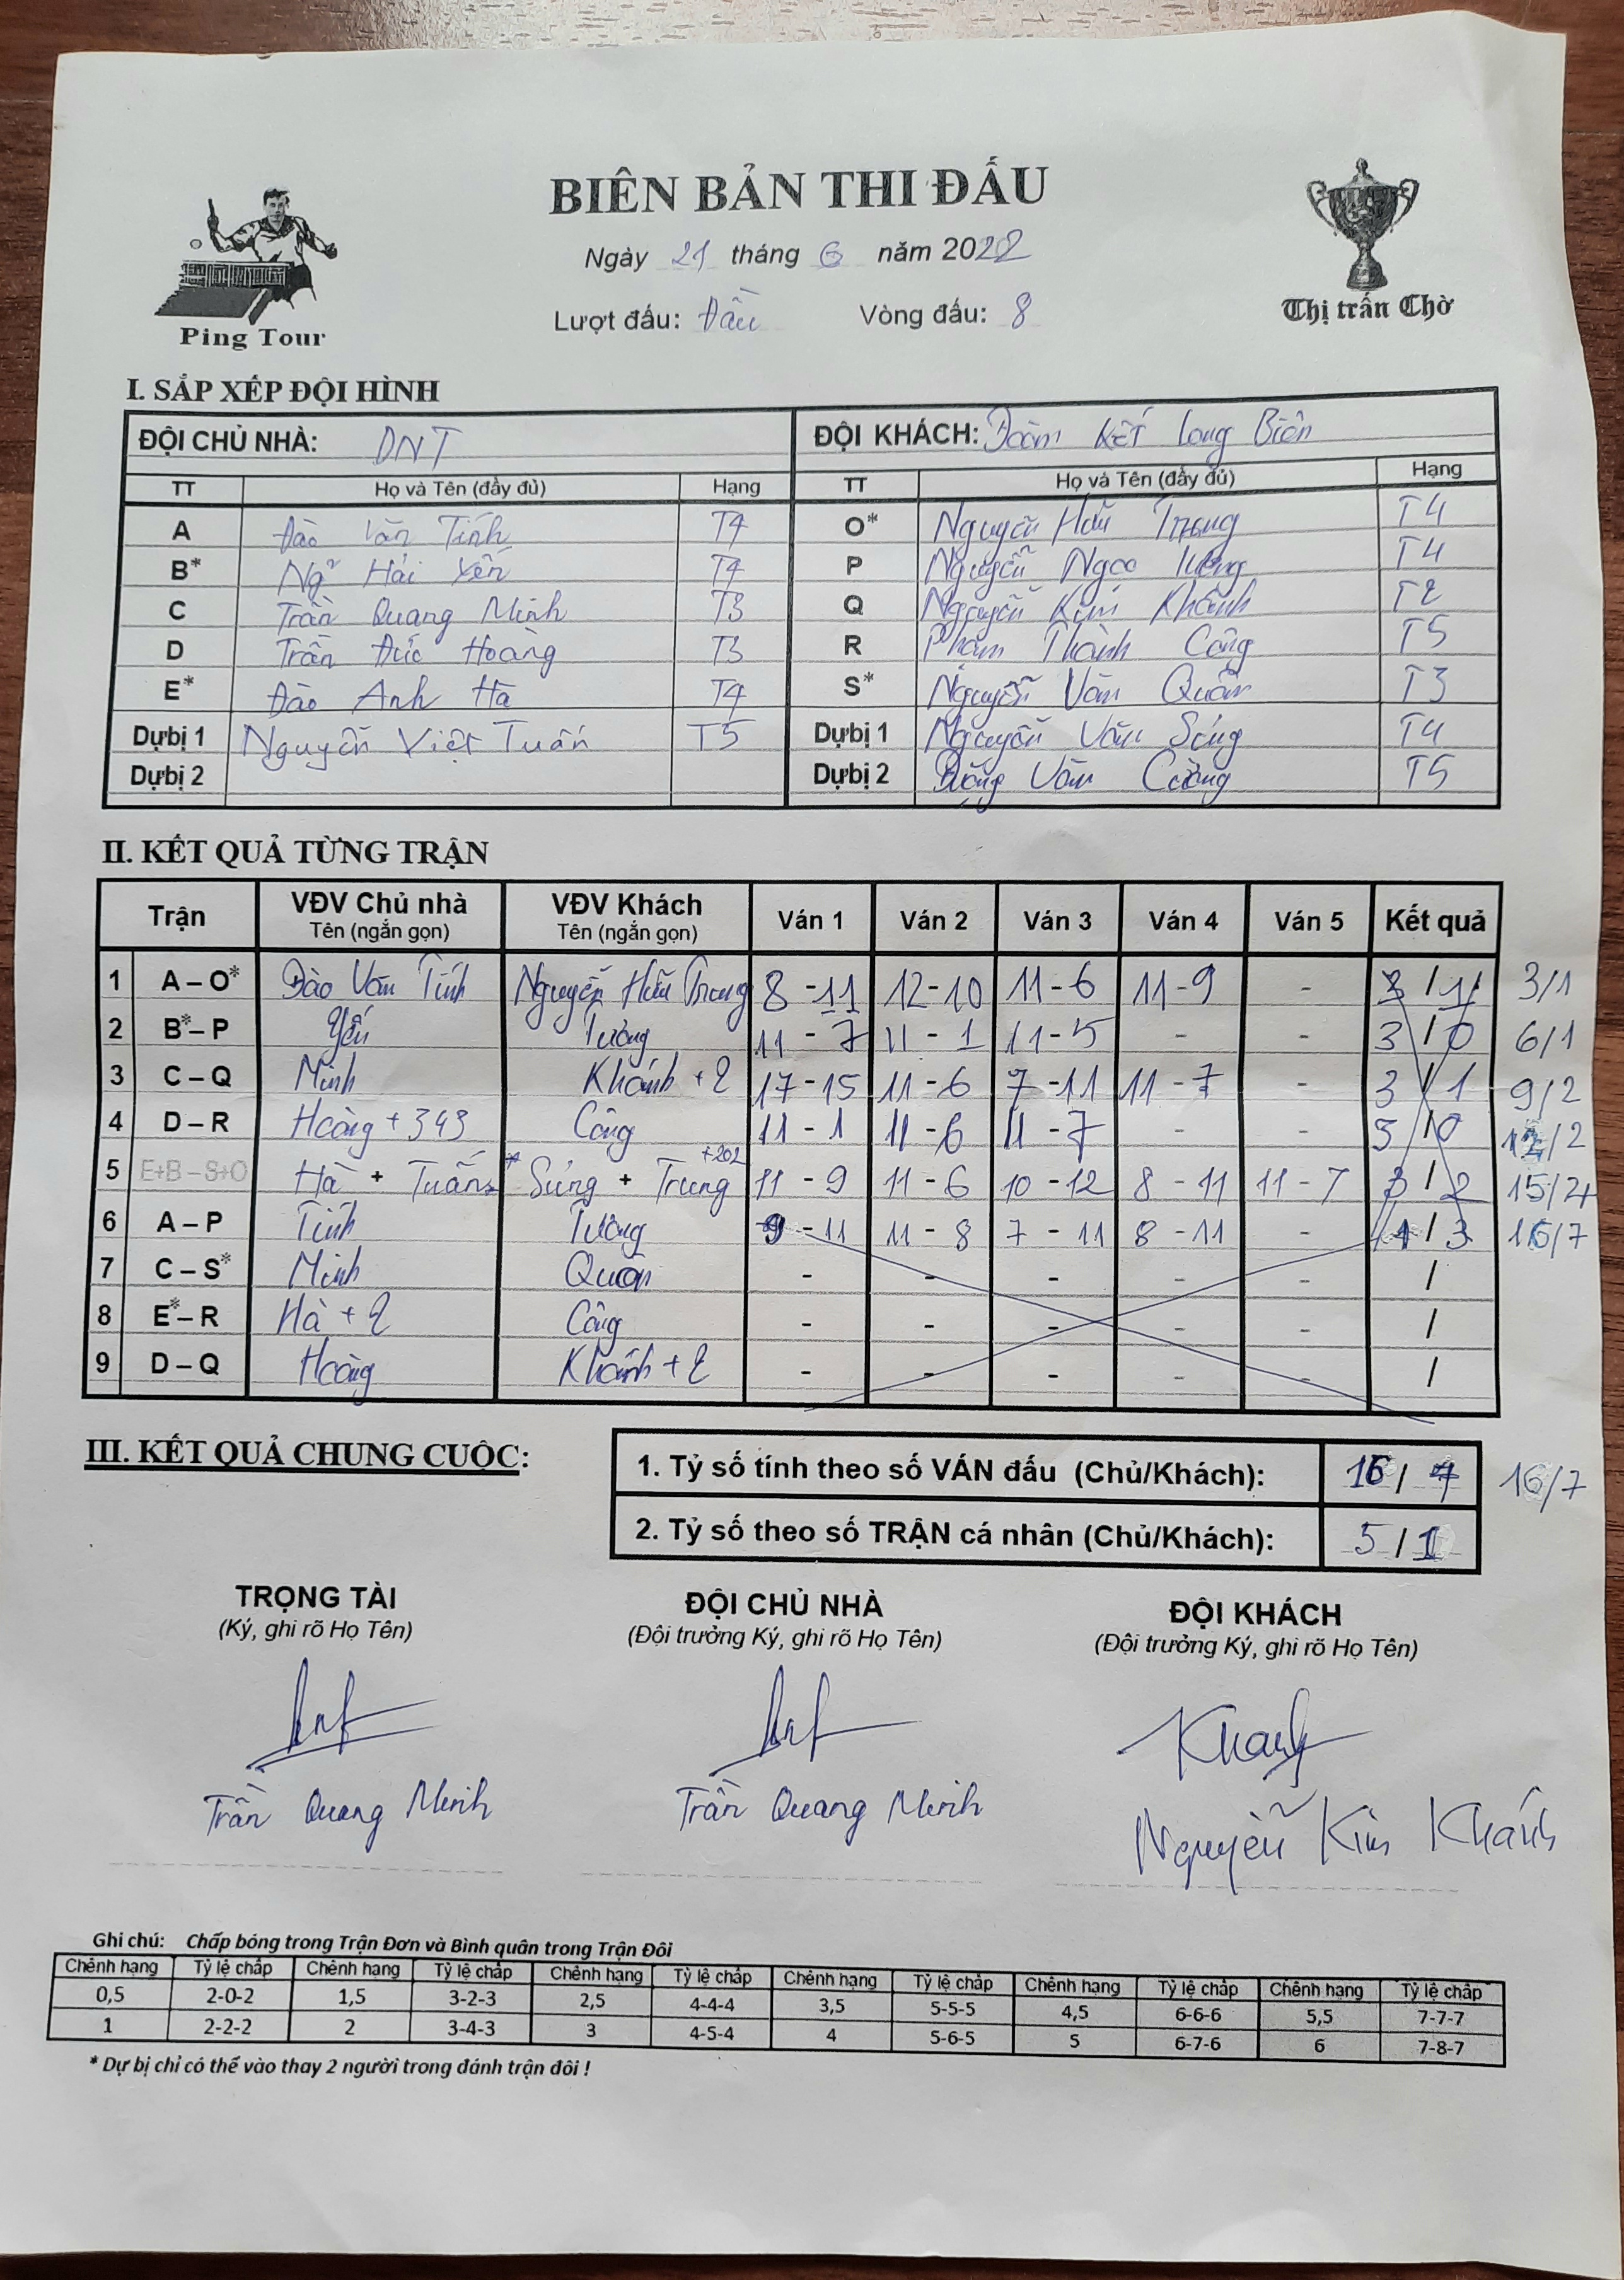 BIÊN BẢN THI ĐẤU
Ngày 21 tháng 6 năm 2022
Lượt đấu: Đầu Vòng đấu: 8
Ping Tour
Thị trấn Chờ
I. SẮP XẾP ĐỘI HÌNH
ĐỘI CHỦ NHÀ: DNT ĐỘI KHÁCH: Đoàn Kết Long Biên
TT Họ và Tên (đầy đủ) Hạng TT Họ và Tên (đầy đủ) Hạng
A Đào Văn Tính T4 O* Nguyễn Hữu Trung T4
B* Hải Yến T4 P Nguyễn Ngọc Tường T4
C Trần Quang Minh T3 Q Nguyễn Kim Khánh T2
D Trần Đức Hoàng T3 R Phạm Thành Công T5
E* Đào Anh Hà T4 S* Nguyễn Văn Quân T3
Dự bị 1 Nguyễn Việt Tuấn T5 Dự bị 1 Nguyễn Văn Sủng T4
Dự bị 2 Dự bị 2 Đặng Văn Cường T5
II. KẾT QUẢ TỪNG TRẬN
Trận VĐV Chủ nhà VĐV Khách Ván 1 Ván 2 Ván 3 Ván 4 Ván 5 Kết quả
Tên (ngắn gọn) Tên (ngắn gọn)
1 A – O* Đào Văn Tính Nguyễn Hữu Trung 8 - 11 12 - 10 11 - 6 11 - 9 - 3 / 1 3/1
2 B* – P Yến Tường 11 - 7 11 - 1 11 - 5 - - 3 / 0 6/1
3 C – Q Minh Khánh + 2 17 - 15 11 - 6 7 - 11 11 - 7 - 3 / 1 9/2
4 D – R Hoàng + 343 Công 11 - 1 11 - 6 11 - 7 - - 3 / 0 12/2
5 E+B – S+O Hà + Tuấn * Sủng + Trung +202 11 - 9 11 - 6 10 - 12 8 - 11 11 - 7 3 / 2 15/4
6 A – P Tính Tường 9 - 11 11 - 8 7 - 11 8 - 11 - 1 / 3 16/7
7 C – S* Minh Quân - - - - - /
8 E* – R Hà + 2 Công - - - - - /
9 D – Q Hoàng Khánh + 2 - - - - - /
III. KẾT QUẢ CHUNG CUỘC:
1. Tỷ số tính theo số VÁN đấu (Chủ/Khách): 16 / 7 16/7
2. Tỷ số theo số TRẬN cá nhân (Chủ/Khách): 5 / 1
TRỌNG TÀI ĐỘI CHỦ NHÀ ĐỘI KHÁCH
(Ký, ghi rõ Họ Tên) (Đội trưởng Ký, ghi rõ Họ Tên) (Đội trưởng Ký, ghi rõ Họ Tên)
Khanh
Trần Quang Minh Trần Quang Minh Nguyễn Kim Khánh
Ghi chú: Chấp bóng trong Trận Đơn và Bình quân trong Trận Đôi
Chênh hạng Tỷ lệ chấp Chênh hạng Tỷ lệ chấp Chênh hạng Tỷ lệ chấp Chênh hạng Tỷ lệ chấp Chênh hạng Tỷ lệ chấp Chênh hạng Tỷ lệ chấp
0,5 2-0-2 1,5 3-2-3 2,5 4-4-4 3,5 5-5-5 4,5 6-6-6 5,5 7-7-7
1 2-2-2 2 3-4-3 3 4-5-4 4 5-6-5 5 6-7-6 6 7-8-7
* Dự bị chỉ có thể vào thay 2 người trong đánh trận đôi !